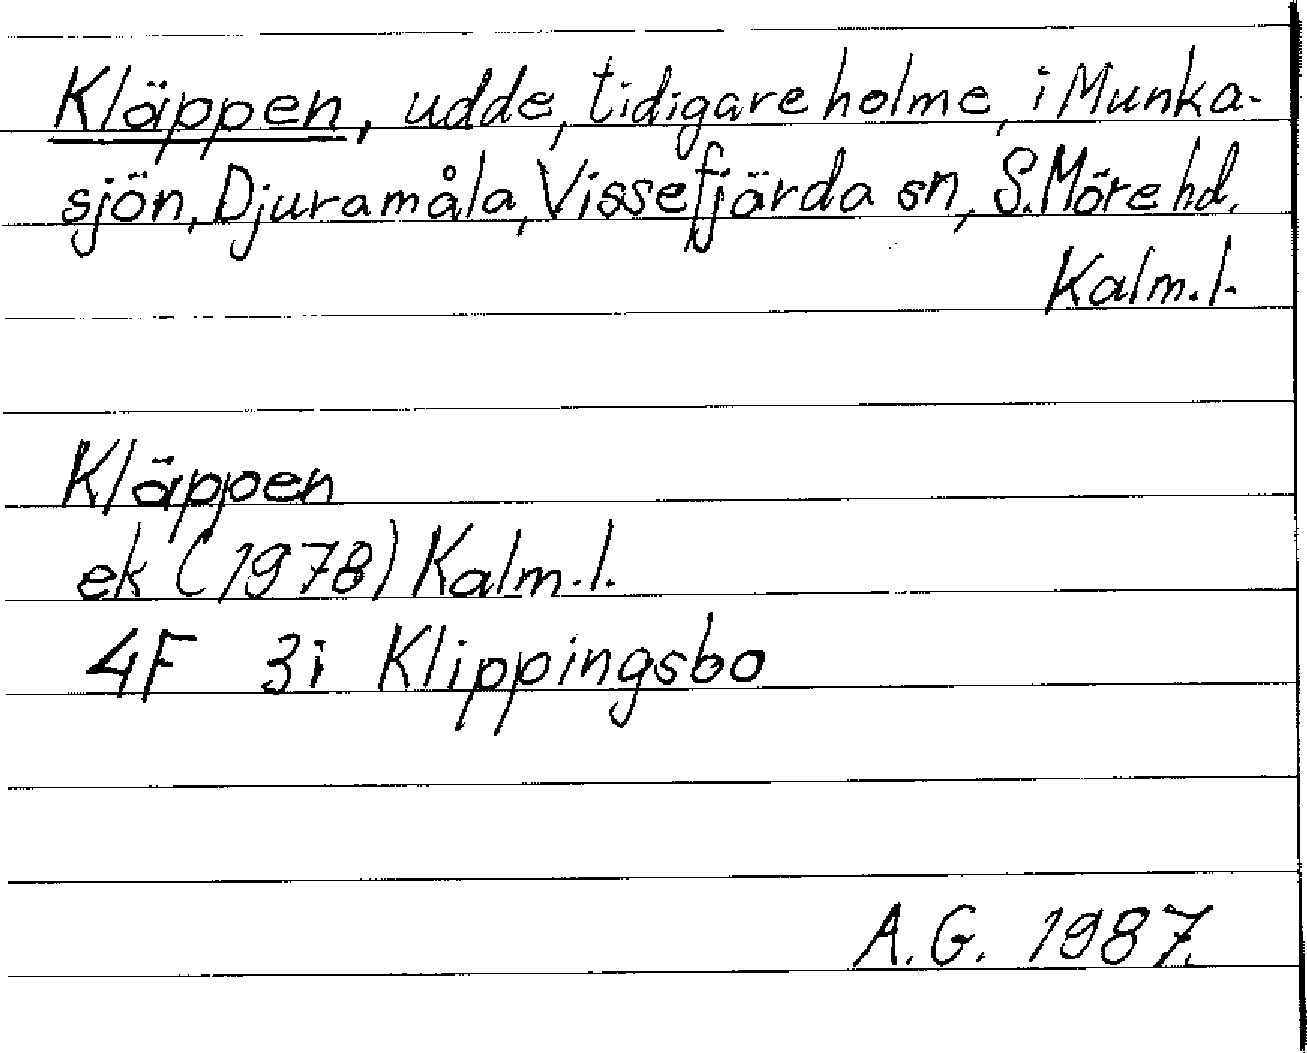 Kläppen, udde, tidigare holme, i Munka-
sjön, Djuramåla, Vissefjärda sn, S. Möre hd,
Kalm. l.
Kläppen
ek (1978) Kalm. l.
4F 3i Klippingsbo
A.G. 1987.